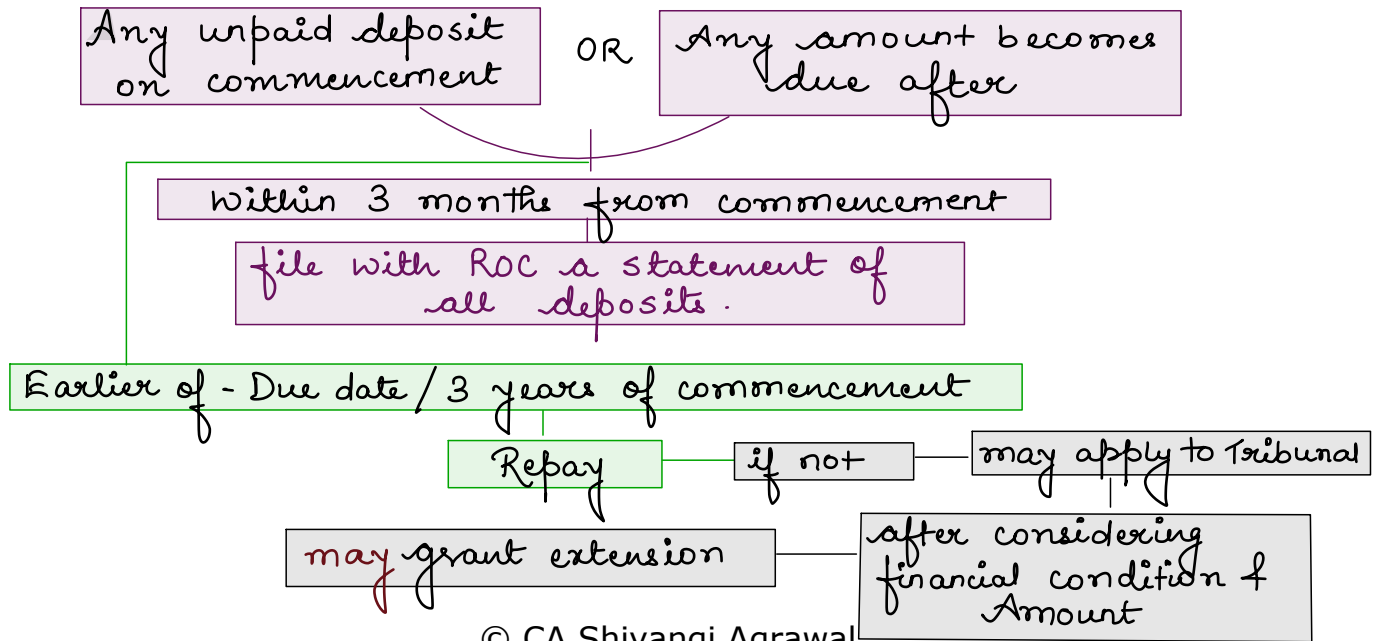 Any unpaid deposit
on commencement
OR
Any amount becomes
due after
within 3 months from commencement
file with ROC a statement of
all deposits.
Earlier of - Due date / 3 years of commencement
Repay
if not
may apply to Tribunal
may grant extension
after considering
financial condition &
Amount
© CA Shivangi Agrawal